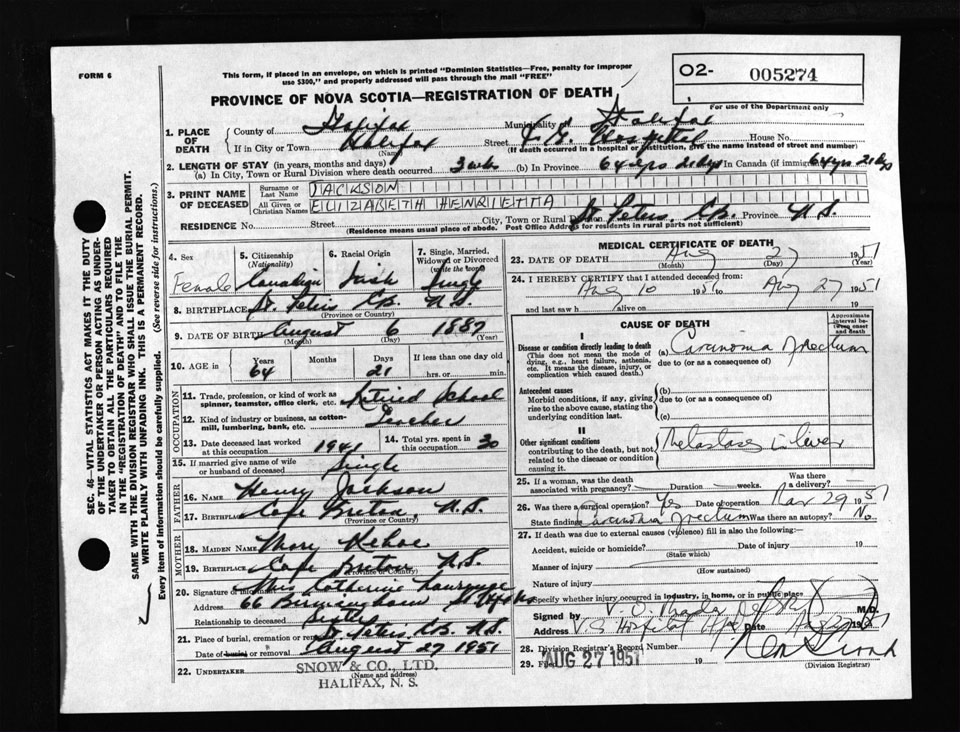 FORM 6
This form, if placed in an envelope, on which is printed "Dominion Statistics—Free, penalty for improper
use $300," and properly addressed will pass through the mail "FREE"
O2- 005274
For use of the Department only
PROVINCE OF NOVA SCOTIA—REGISTRATION OF DEATH
1. PLACE OF DEATH
County of Halifax Municipality of Halifax
If in City or Town Halifax Street V. G. Hospital House No.
(Name) (If death occurred in a hospital or institution, give the name instead of street and number)
2. LENGTH OF STAY (in years, months and days)
(a) In City, Town or Rural Division where death occurred 3 wks (b) In Province 64 yrs 21 dys In Canada (if immigrant) 64 yrs 21 dys
3. PRINT NAME OF DECEASED
Surname or Last Name JACKSON
All Given or Christian Names ELIZABETH HENRIETTA
RESIDENCE No. Street City, Town or Rural Division St Peters, C.B. Province N.S.
(Residence means usual place of abode. Post Office Address for residents in rural parts not sufficient)
4. Sex Female
5. Citizenship (Nationality) Canadian
6. Racial Origin Irish
7. Single, Married, Widowed or Divorced (write the word) Single
8. BIRTHPLACE St. Peters C.B. N.S.
(Province or Country)
9. DATE OF BIRTH August 6 1887
(Month) (Day) (Year)
10. AGE in Years 64 Months Days 21 If less than one day old hrs. or min.
OCCUPATION
11. Trade, profession, or kind of work as spinner, teamster, office clerk, etc. Retired School
12. Kind of industry or business, as cotton-mill, lumbering, bank, etc. Teacher
13. Date deceased last worked at this occupation 1941
14. Total yrs. spent in this occupation 30
15. If married give name of wife or husband of deceased Single
FATHER
16. NAME Henry Jackson
17. BIRTHPLACE Cape Breton, N.S.
(Province or Country)
MOTHER
18. MAIDEN NAME Mary Kehoe
19. BIRTHPLACE Cape Breton N.S.
(Province or Country)
20. Signature of informant Mrs Catherine
Address 66 Birmingham St Hfx NS
Relationship to deceased Sister
21. Place of burial, cremation or removal St. Peters, C.B. N.S.
Date of burial or removal August 27 1951
22. UNDERTAKER SNOW & CO., LTD.
(Name and Address)
HALIFAX, N. S.
MEDICAL CERTIFICATE OF DEATH
23. DATE OF DEATH Aug 27 1951
(Month) (Day) (Year)
24. I HEREBY CERTIFY that I attended deceased from:
Aug 10 1951 to Aug 27 1951
and last saw h alive on 19
CAUSE OF DEATH
Approximate interval between onset and death
I
Disease or condition directly leading to death
(This does not mean the mode of dying, e.g., heart failure, asthenia, etc. It means the disease, injury, or complication which caused death.)
(a) Carcinoma of rectum
due to (or as a consequence of)
Antecedent causes
Morbid conditions, if any, giving rise to the above cause, stating the underlying condition last.
(b)
due to (or as a consequence of)
(c)
II
Other significant conditions
contributing to the death, but not related to the disease or condition causing it.
Metastases in liver
25. If a woman, was the death associated with pregnancy? Duration weeks. Was there a delivery?
26. Was there a surgical operation? Yes Date of operation Mar 29 1951
State findings Carcinoma of rectum Was there an autopsy? No
27. If death was due to external causes (violence) fill in also the following:
Accident, suicide or homicide? Date of injury 19
(State which)
Manner of injury
(How sustained)
Nature of injury
Specify whether injury occurred in industry, in home, or in public place
Signed by V. O. Mader M.D.
Address V.G. Hospital Hfx Date Aug 27 1951
28. Division Registrar's Record Number
29. Filed AUG 27 1951 19
(Division Registrar)
SEC. 46—VITAL STATISTICS ACT MAKES IT THE DUTY
OF THE UNDERTAKER OR PERSON ACTING AS UNDER-
TAKER TO OBTAIN ALL THE PARTICULARS REQUIRED
IN THE "REGISTRATION OF DEATH" AND TO FILE THE
SAME WITH THE DIVISION REGISTRAR WHO SHALL ISSUE THE BURIAL PERMIT.
WRITE PLAINLY WITH UNFADING INK. THIS IS A PERMANENT RECORD.
Every item of information should be carefully supplied. (See reverse side for instructions.)